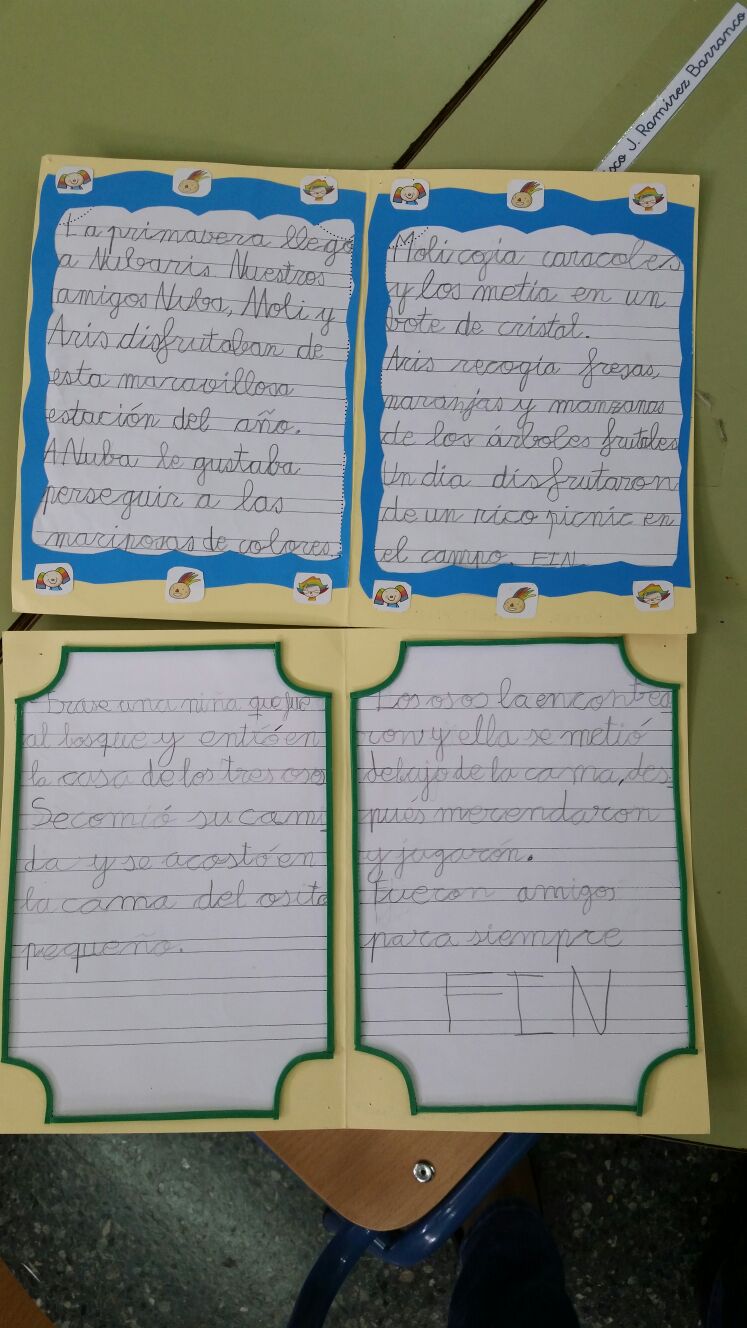 sco J. Ramírez Barranco
La primavera llegó
a Nubaris Nuestros
amigos Nuba, Moli y
Aris disfrutaban de
esta maravillosa
estación del año.
A Nuba le gustaba
perseguir a las
mariposas de colores.
Moli cogía caracoles
y los metía en un
bote de cristal.
Aris recogía fresas,
naranjas y manzanas
de los árboles frutales
Un día disfrutaron
de un rico picnic en
el campo. FIN
Erase una niña que fue
al bosque y entró en
la casa de los tres osos
Se comió su comi
da y se acostó en
la cama del osito
pequeño.
Los osos la encontra
ron y ella se metió
debajo de la cama, des
pués merendaron
y jugarón.
Fueron amigos
para siempre
FIN